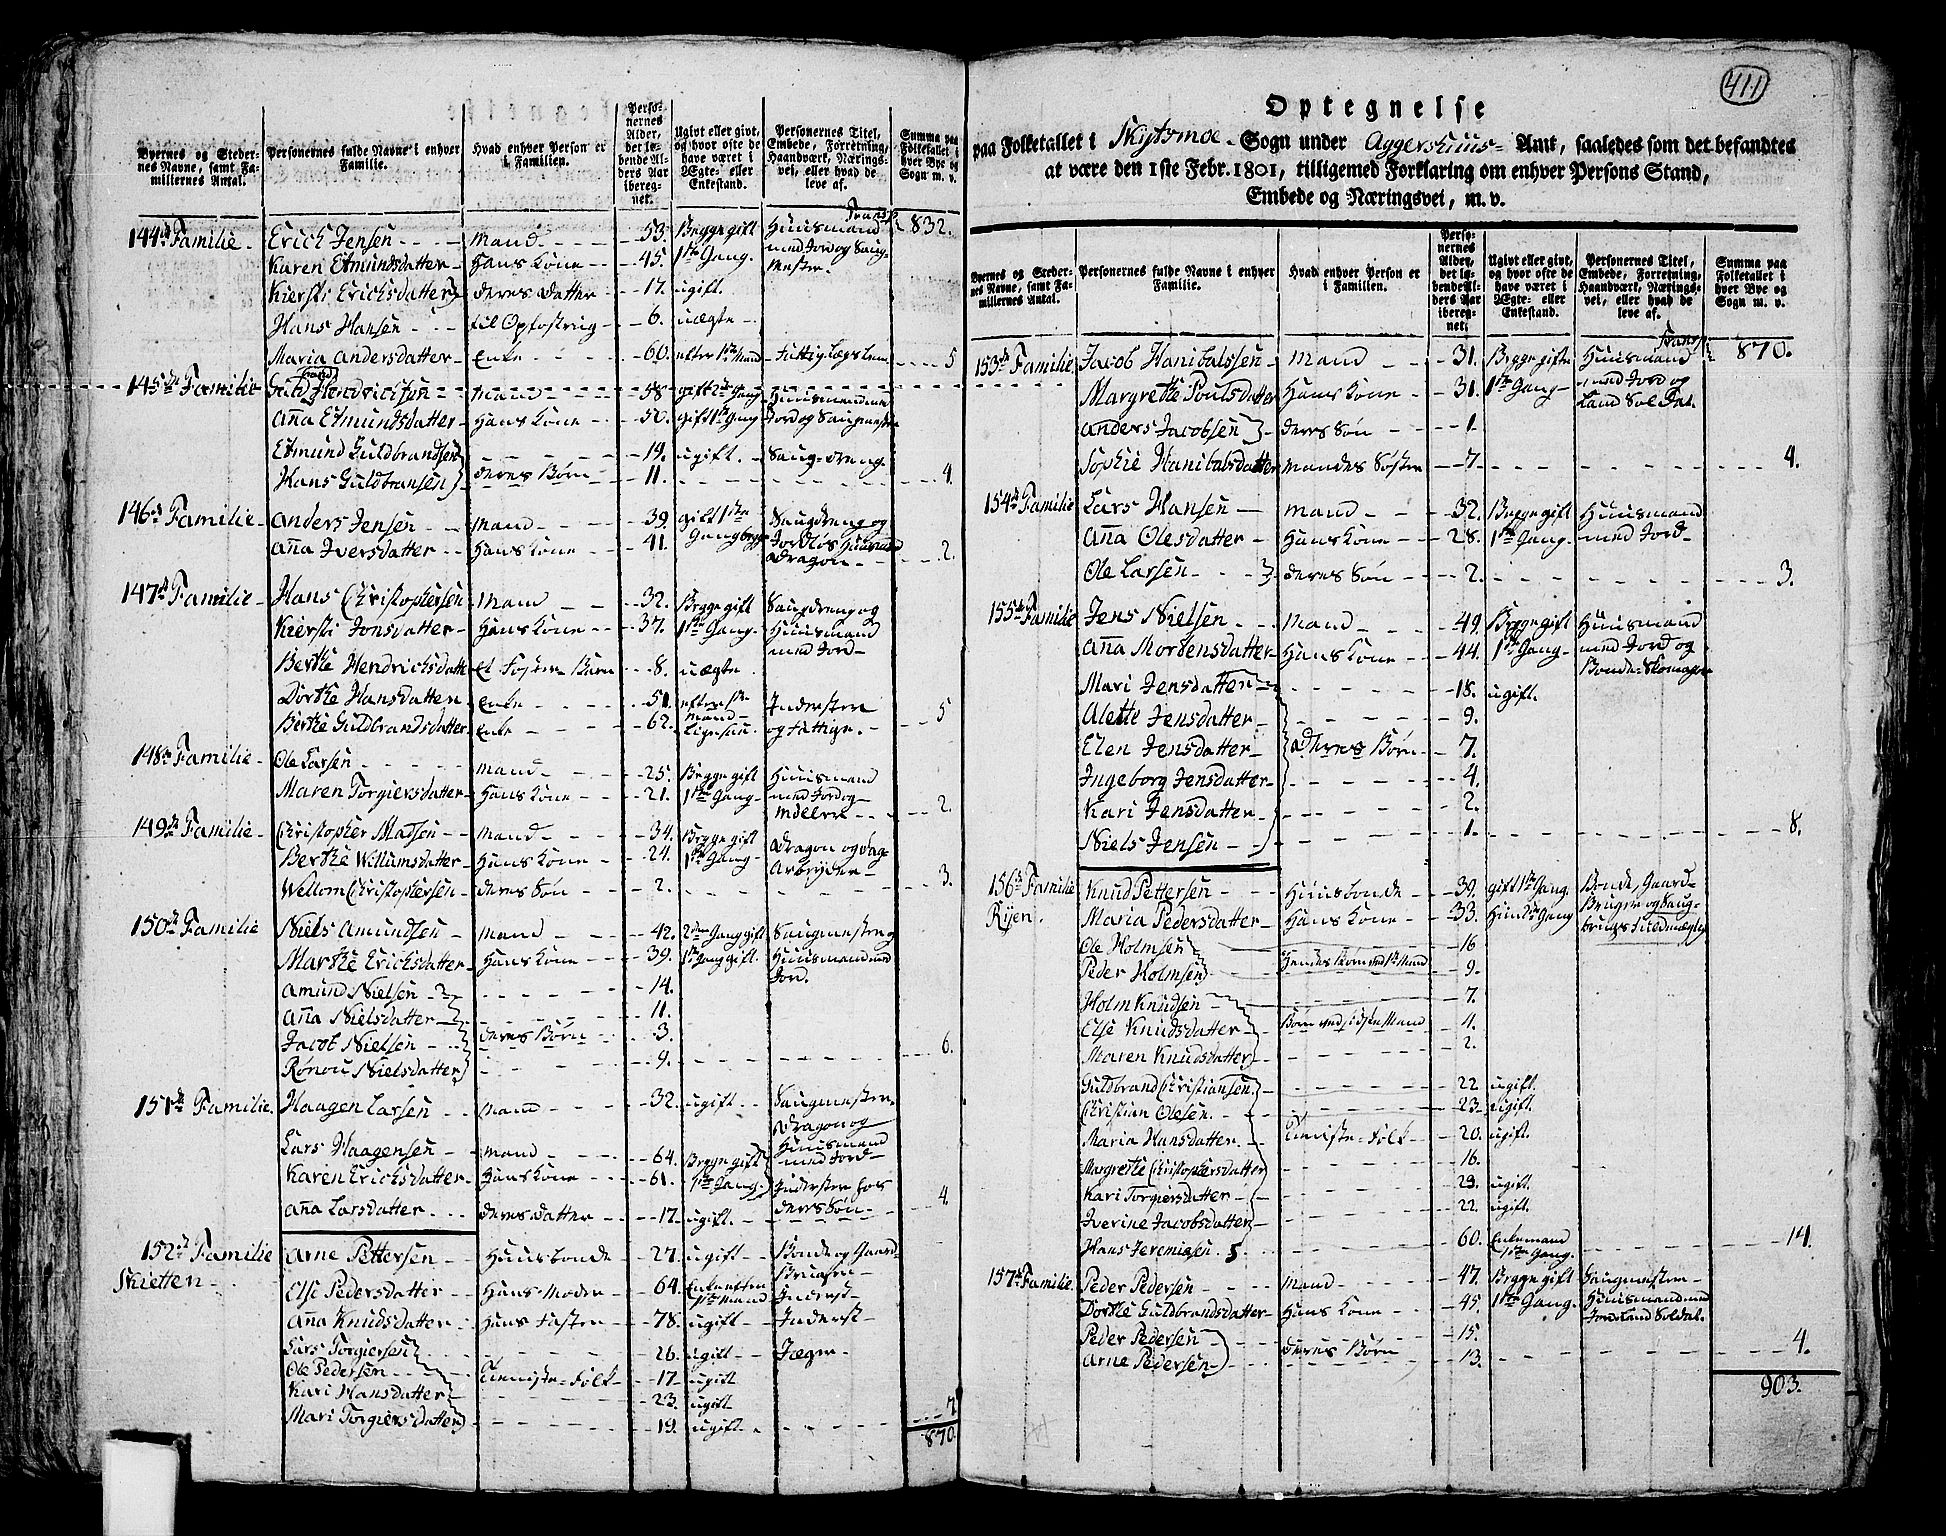 Byernes og Steder- Personernes fulde Navne i enhver Hvad enhver Person er Perso- Ugivt eller givt, Personernes Titel, Summa paa
nes Navne, samt Fa- Familie. i Familien. nernes og hvor ofte de Embede, Forretning, Folketallet i
millernes Antal. Alder, have været i Haandværk, Nærings- hver Bye og
det lø- Ægte- eller vei, eller hvad de Sogn m. v.
bende Al- Enkestand. leve af.
ders Aar
iberegnet.
Transp: 832.
144de Familie Erich Jensen Mand 53. Begge gift Huusmand
Karen Etmundsdatter Hans Kone 45. 1ste Gang med Jord og Saug-
mester
Kiersti Erichsdatter deres datter 17. ugift
Hans Hansen til Opfostring 6. uægte
Maria Andersdatter Enke 60. efter 1ste Mand fattig Lægslem 5
145de Familie Guldbrand Hendrichsen Mand 58 gift 2den Gang Huusmand med
Anna Etmundsdatter Hans Kone 50. gift 1ste Gang Jord og Saugmester
Etmund Guldbrandsen 19. ugift Saugdreng
Hans Guldbransen deres Børn 11. 4.
146de Familie Anders Jensen Mand 39. gift 1ste Saugdreng og
Anna Iversdatter Hans Kone 41. Gang begge Jordløs Huusmand 2.
Dragon
147de Familie Hans Christophersen Mand 32. Begge gift Saugdreng og
Kiersti Jonsdatter Hans Kone 37. 1ste Gang Huusmand
med Jord
Berthe Hendrichsdatt et Foster Barn 8. uægte
Dorthe Hansdatter Enke 51. efter 1ste Inderster 5
Berthe Guldbrandsdatter Enke 62. Mand og fattige
Ligesaa
148de Familie Ole Larsen Mand 25. Begge gift Huusmand
Maren Torgiersdatter Hans Kone 21. 1ste Gang med Jord og 2.
149de Familie Christopher Madsen Mand 34. Begge gift
Berthe Willumsdatter Hans Kone 24. 1ste Gang Dragon og dag-
Arbeyder
Wellom Christophersen deres Søn 2. 3.
150de Familie Niels Amundsen Mand 42. 2den Gang gift Saugmester og
Marthe Erichsdatter Hans Kone 39. 1ste Gang gift Huusmand med
Jord.
Amund Nielsen 14.
Anna Nielsdatter 11.
Jacob Nielsen deres Børn 3.
Rønou Nielsdatter 9. 6.
151de Familie Haagen Larsen Mand 32. ugift Saugmester
Dragon og
Lars Haagensen Mand 64. Begge gift Huusmand
med Jord
Karen Erichsdatter Hans Kone 61. 1ste Gang Inderster hos
Anna Larsdatter deres datter 17. ugift deres Søn 4.
152de Familie Arne Pettersen Huusbonde 27. ugift Bonde og Gaard-
Skietten Bruger
Else Pedersdatter Hans Moder 64. Enke efter Inderst
1ste Mand
Anna Knudsdatter Hans Faster 78. ugift Inderst
Lars Torgiersen 26. ugift Jæger
Ole Pedersen Tieniste-Folk 17. ugift
Kari Hansdatter 23. ugift
Mari Torgiersdatter 19. ugift 7.
870.
411
Optegnelse
paa Folketallet i Skydsmoe Sogn under Aggershuus Amt, saaledes som det befandtes
at være den 1ste Febr. 1801, tilligemed Forklaring om enhver Persons Stand,
Embede og Næringsvei, m. v.
Byernes og Steder- Personernes fulde Navne i enhver Hvad enhver Person er Perso- Ugivt eller givt, Personernes Titel, Summa paa
nes Navne, samt Fa- Familie. i Familien. nernes og hvor ofte de Embede, Forretning, Folketallet i
millernes Antal. Alder, have været i Haandværk, Nærings- hver Bye og
det lø- Ægte- eller vei, eller hvad de Sogn m. v.
bende Al- Enkestand. leve af.
ders Aar
iberegnet.
Transp: 870.
153de Familie Jacob Hanibalssen Mand 31. Begge gifte Huusmand
Margrethe Poulsdatter Hans Kone 31. 1ste Gang med Jord og
Land Soldat.
Anders Jacobsen deres Søn 1.
Sophie Hanibalsdatter Mandes Søster 7. 4.
154de Familie Lars Hansen Mand 32. Begge gift Huusmand
Anna Olesdatter Hans Kone 28. 1ste Gang med Jord
Ole Larsen deres Søn 2. 3.
155de Familie Jens Nielsen Mand 49. Begge gift Huusmand
Anna Mortensdatter Hans Kone 44. 1ste Gang med Jord og
Bonde-Skomager
Mari Jensdatter 18. ugift.
Alette Jensdatter 9.
Elen Jensdatter deres Børn 7.
Ingeborg Jensdatter 4.
Kari Jensdatter 2.
Niels Jensen 1. 8.
156de Familie Knud Pettersen Huusbonde 39. gift 1ste Gang Bonde, Gaard-
Rijen. Maria Pedersdatter Hans Kone 33. Hun 2den Gang Bruger og Saug-
Ole Holmsen 16
Peder Holmsen Hendes Børn ved 1ste Mand 9.
Holm Knudsen 7.
Else Knudsdatter Børn ved sidste Mand 4.
Maren Knudsdatter 2.
Guldbrand Christiansen 22 ugift.
Christian Olesen 23. ugift.
Maria Hansdatter Tieniste-Folk 20. ugift.
Margrethe Christophersdatter 16.
Kari Torgiersdatter 29. ugift.
Iverine Jacobsdatter 22. ugift.
Hans Jeremiesen 60. Enkemand 14.
1ste Gang.
157de Familie Peder Pedersen Mand 47. Begge gift Saugmester
Dorthe Guldbrandsdatter Hans Kone 45. 1ste Gang. Huusmand med
Jord Land Soldat.
Peder Pedersen 15.
Arne Pedersen deres Børn 13. 4.
903.